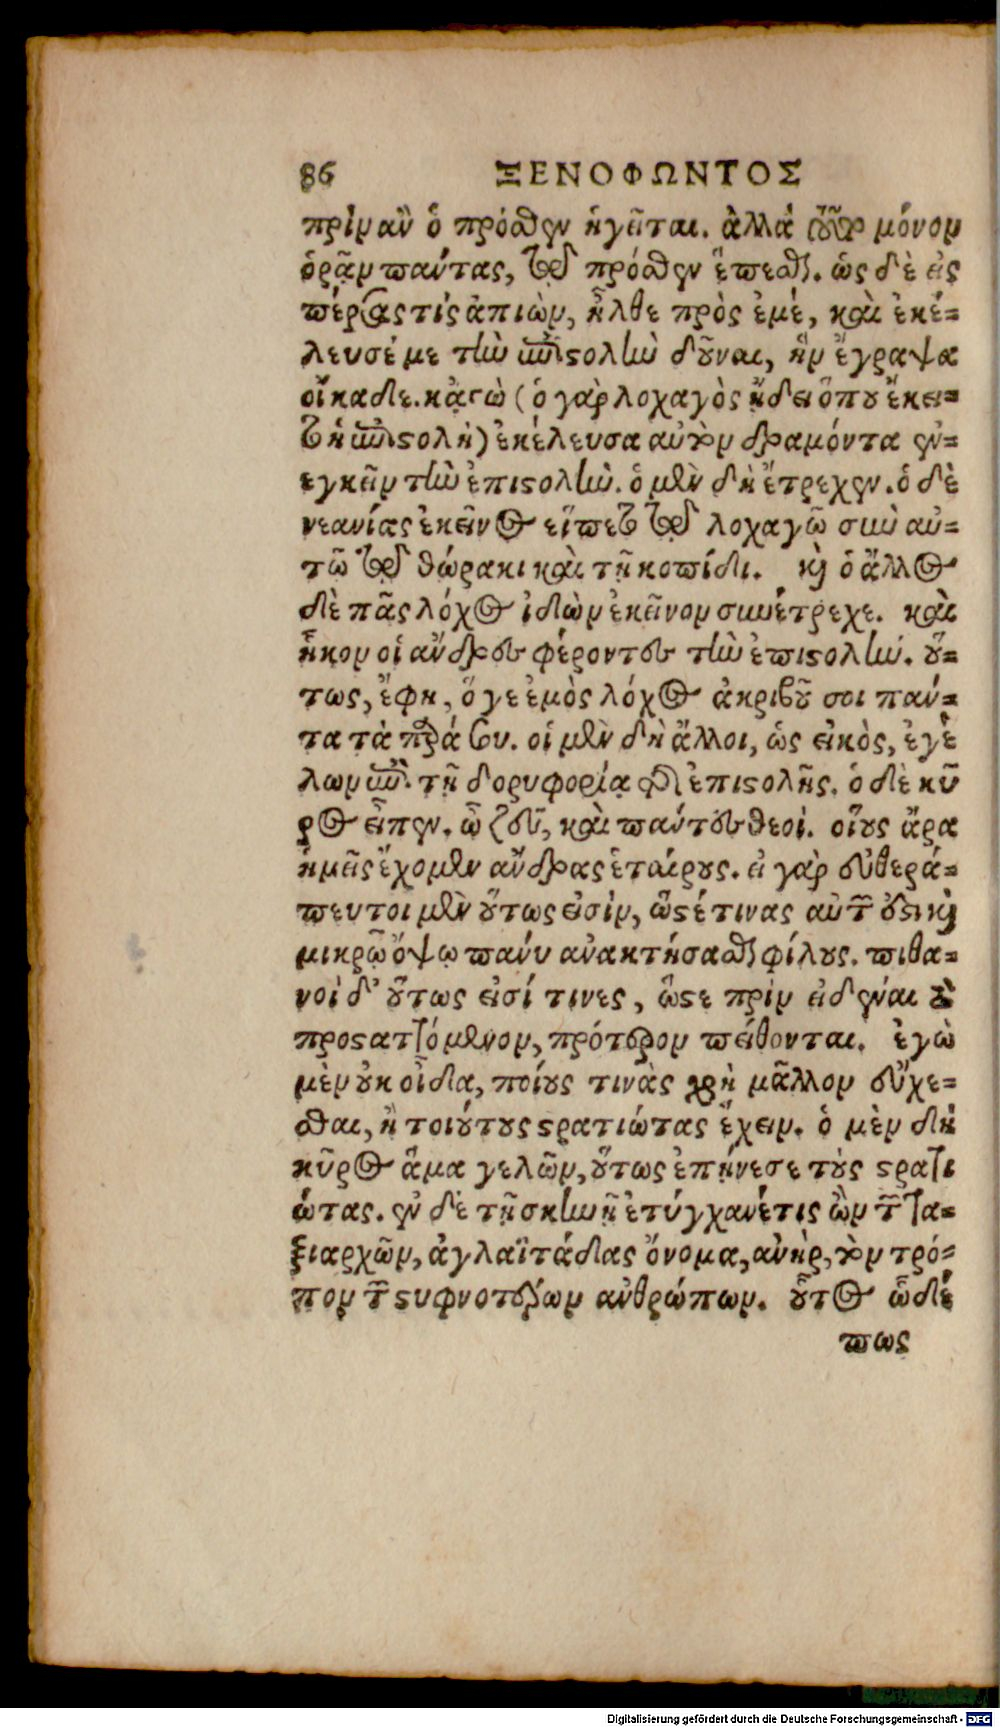 86 ΞΕΝΟΦΩΝΤΟΣ
πρὶν ἂν ὁ πρόσθεν ἡγεῖται. ἀλλὰ μόνον
ὁρᾶν πάντας, τῷ πρόσθεν ἕπεσθαι. ὡς δὲ εἰς
πέρσας τὶς ἀπιὼν, ἦλθε πρὸς ἐμέ, καὶ ἐκέ-
λευσέ με τὴν ἐπιστολὴν δοῦναι, ἣν ἔγραψα
οἴκαδε. κᾀγὼ (ὁ γὰρ λοχαγὸς ᾔδει ὅπου ἔκει-
το ἡ ἐπιστολὴ) ἐκέλευσα αὐτὸν δραμόντα ἐν-
εγκεῖν τὴν ἐπιστολήν. ὁ μὲν δὴ ἔτρεχεν. ὁ δὲ
νεανίας ἐκεῖνος εἵπετο τῷ λοχαγῷ σὺν αὐ-
τῷ τῷ θώρακι καὶ τῇ κοπίδι. καὶ ὁ ἄλλος
δὲ πᾶς λόχος ἰδὼν ἐκεῖνον συνέτρεχε. καὶ
ἧκον οἱ ἄνδρες φέροντες τὴν ἐπιστολήν. οὕ-
τως, ἔφη, ὅ γε ἐμὸς λόχος ἀκριβοῖ σοι πάν-
τα τὰ παρά σου. οἱ μὲν δὴ ἄλλοι, ὡς εἰκὸς, ἐγέ
λων ἐπὶ τῇ δορυφορίᾳ τῆς ἐπιστολῆς. ὁ δὲ κῦ
ρος εἶπεν. ὦ ζεῦ, καὶ πάντες θεοί. οἵους ἄρα
ἡμεῖς ἔχομεν ἄνδρας ἑταίρους. εἰ γὰρ εὐθερά-
πευτοι μὲν οὕτως εἰσὶν, ὥστέ τινας αὐτῶν ἔστι καὶ
μικρῷ ὄψῳ πάνυ ἀνακτήσασθαι φίλους. πιθα-
νοὶ δ' οὕτως εἰσί τινες, ὥστε πρὶν εἰδέναι τὸ
προσταττόμενον, πρότερον πείθονται. ἐγὼ
μὲν οὐκ οἶδα, ποίους τινὰς χρὴ μᾶλλον εὔχε-
σθαι, ἢ τοιούτους στρατιώτας ἔχειν. ὁ μὲν δὴ
κῦρος ἅμα γελῶν, οὕτως ἐπῄνεσε τοὺς στρατι
ώτας. ἐν δὲ τῇ σκηνῇ ἐτύγχανέ τις ὢν τῶν τα-
ξιαρχῶν, ἀγλαϊτάδας ὄνομα, ἀνὴρ, τὸν τρό-
πον τῶν στυφνοτέρων ἀνθρώπων. οὗτος ὧδέ
πως